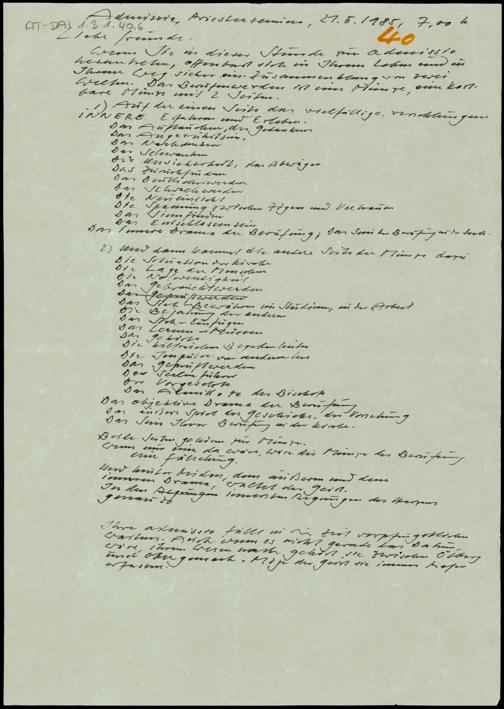 AT-DAI 1.3.1.40.6
Admissio, Priesterseminar, 21.5.1985, 7,00 h
40
Liebe Freunde.
Wenn Sie in dieser Stunde zur Admissio
herantreten, offenbart sich in Ihrem Leben und in
Ihrem Weg sicher ein Zusammenklang von zwei
Welten. Das Berufenwerden ist eine Münze, eine kost-
bare Münze mit 2 Seiten.
1) Auf der einen Seite das vielfältige, verschlungene
INNERE Erfahren und Erleben.
Das Auftauchen des Gedankens
Das Angerührtsein,
Das Nachdenken
Das Schwanken
Die Unsicherheit, das Abwägen
Das Zurückfinden
Das Deutlicherwerden
Das Schwächerwerden
Die Neueinsicht
Die Spannung zwischen Zögern und Vertrauen
Das Sinnfinden
Das Entschlossensein
Das innere Drama der Berufung, Das Berufung in der
2) Und dann kommt die andere Seite der Münze dazu
Die Situation der Kirche
Die Lage der Menschen
Die Notwendigkeit
Das Gebrauchtwerden
Das Geprüftwerden
Das Sich Bewähren im Studium, in der Arbeit
Die Bejahung der anderen
Das
Das Lernen müssen
Das
Die hilfreichen Begebenheiten
Die Impulse von anderen her
Das Geprüftwerden
Der Seelenführer
Der Vorgesetzte
Das Admitto te des Bischofs
Das objektive Drama der Berufung
Das äußere Spiel der Geschichte, der Vorsehung
Das Sein Ihrer Berufung in der Kirche.
Beide Seiten gehören zur Münze.
Wenn nur eine da wäre, wäre die Münze der Berufung
eine Fälschung.
Und hinter beiden, dem äußeren und dem
inneren Drama, waltet der Geist.
In den Regungen innersten Regungen des Herzens
genau so
Ihre Admissio fällt in die Zeit vorpfingstlichen
Wartens. Auch wenn es nicht gerade das Datum
wäre, ihrem Wesen nach gehört sie zwischen Ölberg
und Obergemach. Möge der Geist sie immer tiefer
erfassen.